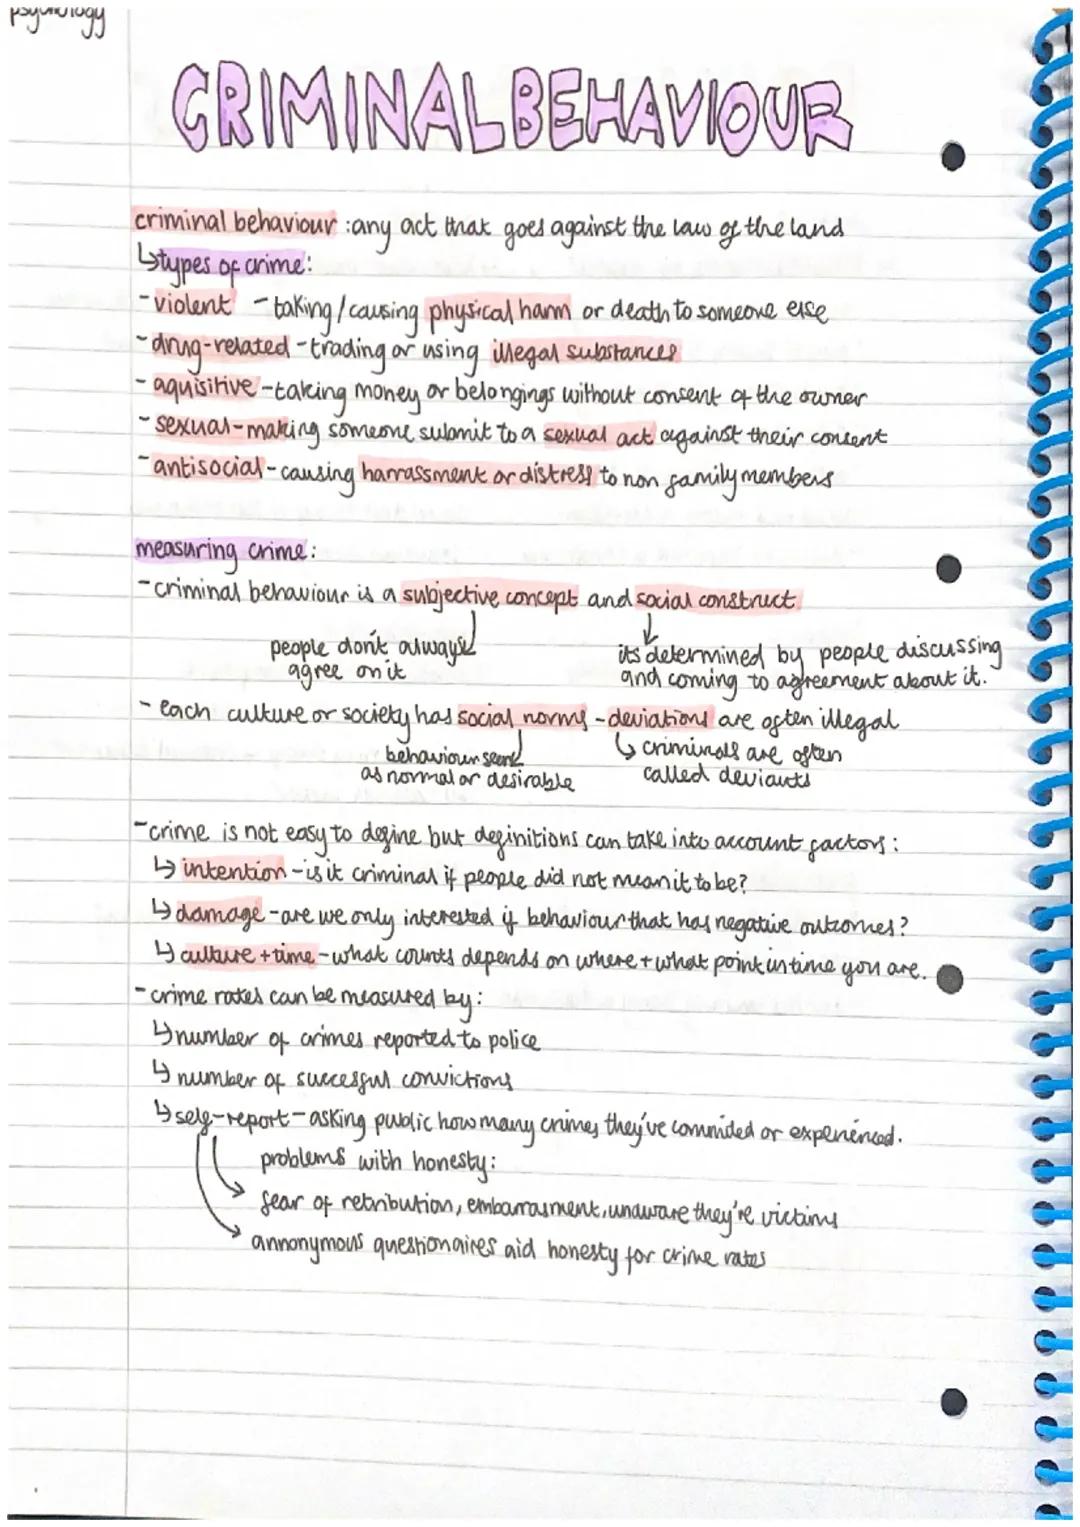 psychology
CRIMINAL BEHAVIOUR
criminal behaviour : any act that goes against the law of the land
↳ types of crime:
- violent - taking / causing physical harm or death to someone else
- drug-related - trading or using illegal substances
- aquisitive - taking money or belongings without consent of the owner
- sexual - making someone submit to a sexual act against their consent
- antisocial - causing harrassment or distress to non family members
measuring crime:
- criminal behaviour is a subjective concept and social construct
people don't always
agree on it
its determined by people discussing
and coming to agreement about it.
- each culture or society has social norms - deviations are often illegal
behaviour seen
as normal or desirable
↳ criminals are often
called deviants
- crime is not easy to define but definitions can take into account factors:
↳ intention - is it criminal if people did not mean it to be?
↳ damage - are we only interested if behaviour that has negative outcomes?
↳ culture + time - what counts depends on where + what point in time you are.
- crime rates can be measured by:
↳ number of crimes reported to police
↳ number of successful convictions
↳ self-report - asking public how many crimes they've commided or experienced.
problems with honesty:
fear of retribution, embarrasment, unaware they're victims
annonymous questionaires aid honesty for crime rates